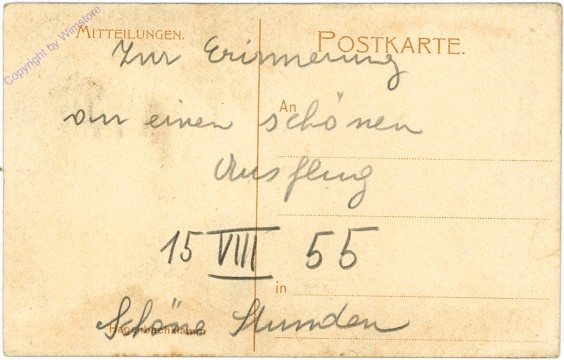 Copyright by Wimstore
MITTEILUNGEN.
POSTKARTE.
Zur Erinnerung
An
an einen schönen
Ausflug
15 VIII 55
in
Schöne Stunden